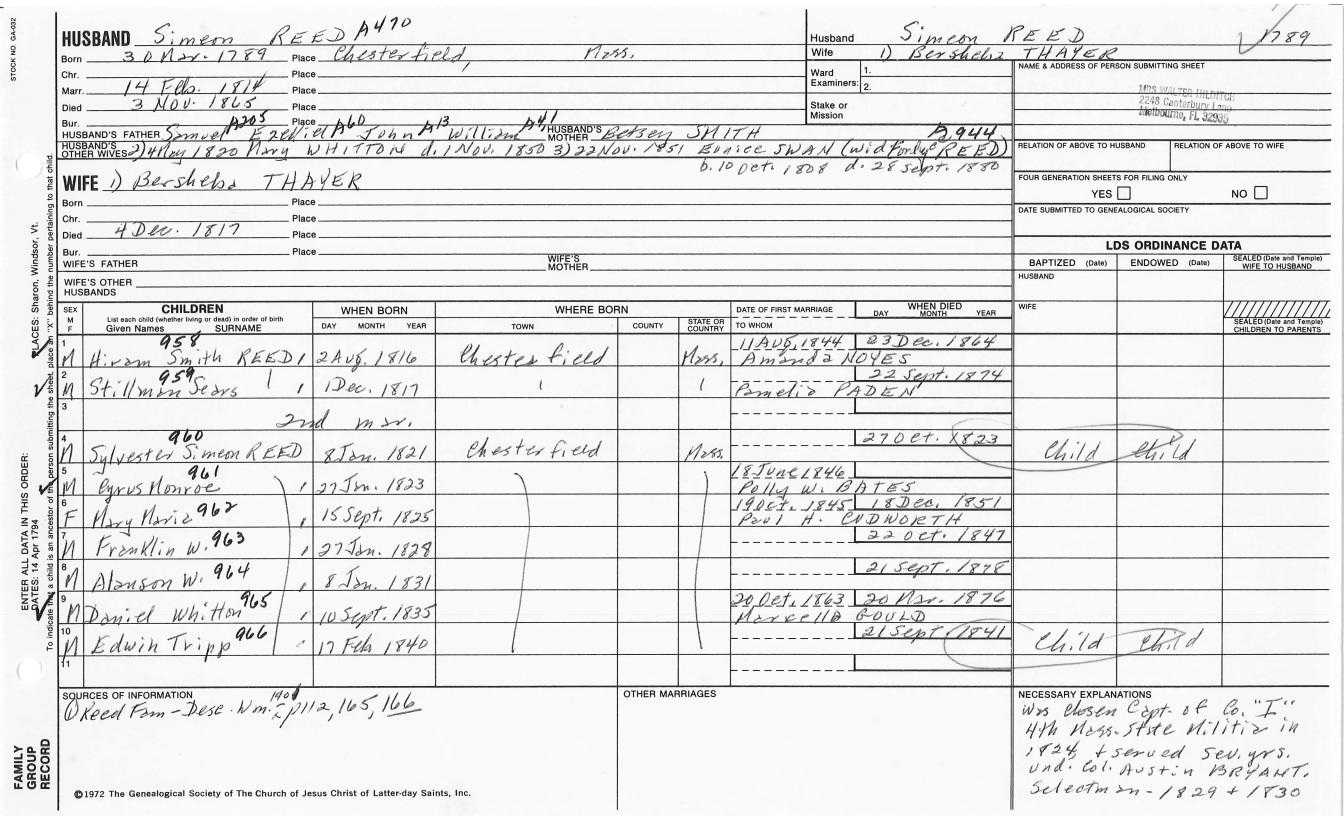 STOCK NO. GA-032
HUSBAND Simeon REED A470
Born 30 Mar. 1789 Place Chesterfield, Mass.
Chr. Place
Marr. 14 Feb. 1814 Place
Died 3 Nov. 1865 Place
Bur. Place
HUSBAND'S FATHER Samuel A205 Ezekiel A60 John A13 William A41 HUSBAND'S MOTHER Betsey SMITH A944
HUSBAND'S OTHER WIVES 2) 4 May 1820 Mary WHITTON d. 1 Nov. 1850 3) 22 Nov. 1851 Eunice SWAN (wid REED)
b. 10 Oct. 1808 d. 28 Sept. 1880
Husband Simeon REED 1789
Wife 1) Bersheba THAYER
Ward Examiners: 1.
2.
Stake or Mission
NAME & ADDRESS OF PERSON SUBMITTING SHEET
MRS WALTER HILDITCH
2248 Canterbury Lane
Melbourne, FL 32935
RELATION OF ABOVE TO HUSBAND RELATION OF ABOVE TO WIFE
FOUR GENERATION SHEETS FOR FILING ONLY
YES NO
DATE SUBMITTED TO GENEALOGICAL SOCIETY
WIFE 1) Bersheba THAYER
Born Place
Chr. Place
Died 4 Dec. 1817 Place
Bur. Place
WIFE'S FATHER WIFE'S MOTHER
WIFE'S OTHER HUSBANDS
LDS ORDINANCE DATA
BAPTIZED (Date) ENDOWED (Date) SEALED (Date and Temple) WIFE TO HUSBAND
HUSBAND
WIFE
SEALED (Date and Temple) CHILDREN TO PARENTS
SEX M F CHILDREN WHEN BORN WHERE BORN DATE OF FIRST MARRIAGE WHEN DIED
List each child (whether living or dead) in order of birth
Given Names SURNAME DAY MONTH YEAR TOWN COUNTY STATE OR COUNTRY TO WHOM DAY MONTH YEAR
1 M 958 Hiram Smith REED 2 Aug. 1816 Chesterfield Mass. 11 Aug. 1844 23 Dec. 1864
Amanda NOYES
2 M 959 Stillman Sears " 1 Dec. 1817 " " 22 Sept. 1874
Pamelia PADEN
3 2nd mar.
4 M 960 Sylvester Simeon REED 8 Jan. 1821 Chesterfield Mass. 27 Oct. 1823 Child Child
5 M 961 Cyrus Monroe 27 Jan. 1823 18 June 1846
Polly W. BATES
6 F Mary Maria 962 15 Sept. 1825 19 Oct. 1845 18 Dec. 1851
Paul H. CUDWORTH
7 M Franklin W. 963 27 Jan. 1828 22 Oct. 1847
8 M Alanson W. 964 8 Jan. 1831 21 Sept. 1878
9 M Daniel Whitton 965 10 Sept. 1835 20 Oct. 1863 20 Mar. 1876
Marcella GOULD
10 M Edwin Tripp 966 17 Feb 1840 21 Sept 1841 Child Child
11
SOURCES OF INFORMATION
① Reed Fam - Desc. Wm. 1901 p112, 165, 166
OTHER MARRIAGES
NECESSARY EXPLANATIONS
Was chosen Capt. of Co. "I"
4th Mass. State Militia in
1824 + served sev. yrs.
und. Col. Austin BRYANT.
Selectman - 1829 + 1830
©1972 The Genealogical Society of The Church of Jesus Christ of Latter-day Saints, Inc.
FAMILY GROUP RECORD
ENTER ALL DATA IN THIS ORDER:
DATES: 14 Apr 1794
PLACES: Sharon, Windsor, Vt.
To indicate that a child is an ancestor of the person submitting the sheet, place an "X" behind the number pertaining to that child.